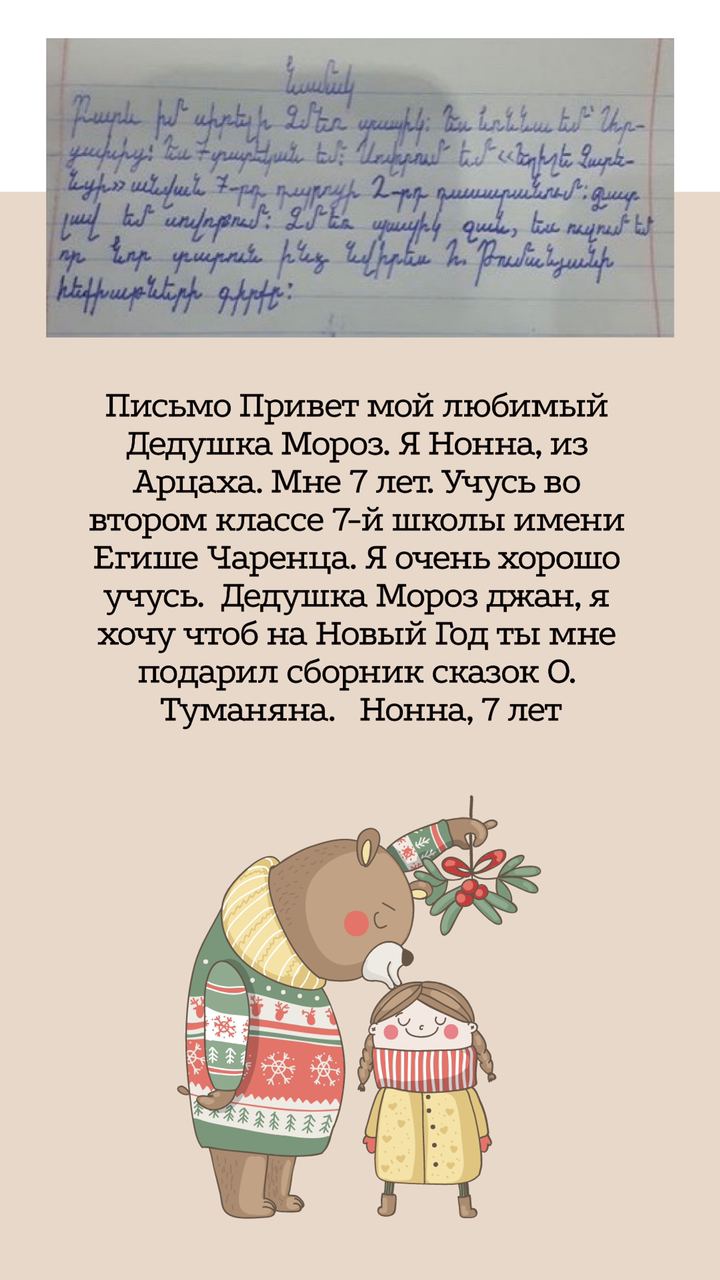 Նամակ
Բարև իմ սիրելի Ձմեռ պապիկ: Ես Նոննա եմ՝ Ար-
ցախից: Ես 7 տարեկան եմ: Սովորում եմ «Եղիշե Չարե-
նցի» անվան 7-րդ դպրոցի 2-րդ դասարանում: Շատ
լավ եմ սովորում: Ձմեռ պապիկ ջան, ես ուզում եմ
որ Նոր տարուն ինձ նվիրես Հ. Թումանյանի
հեքիաթների գիրքը:
Письмо Привет мой любимый
Дедушка Мороз. Я Нонна, из
Арцаха. Мне 7 лет. Учусь во
втором классе 7-й школы имени
Егише Чаренца. Я очень хорошо
учусь. Дедушка Мороз джан, я
хочу чтоб на Новый Год ты мне
подарил сборник сказок О.
Туманяна. Нонна, 7 лет